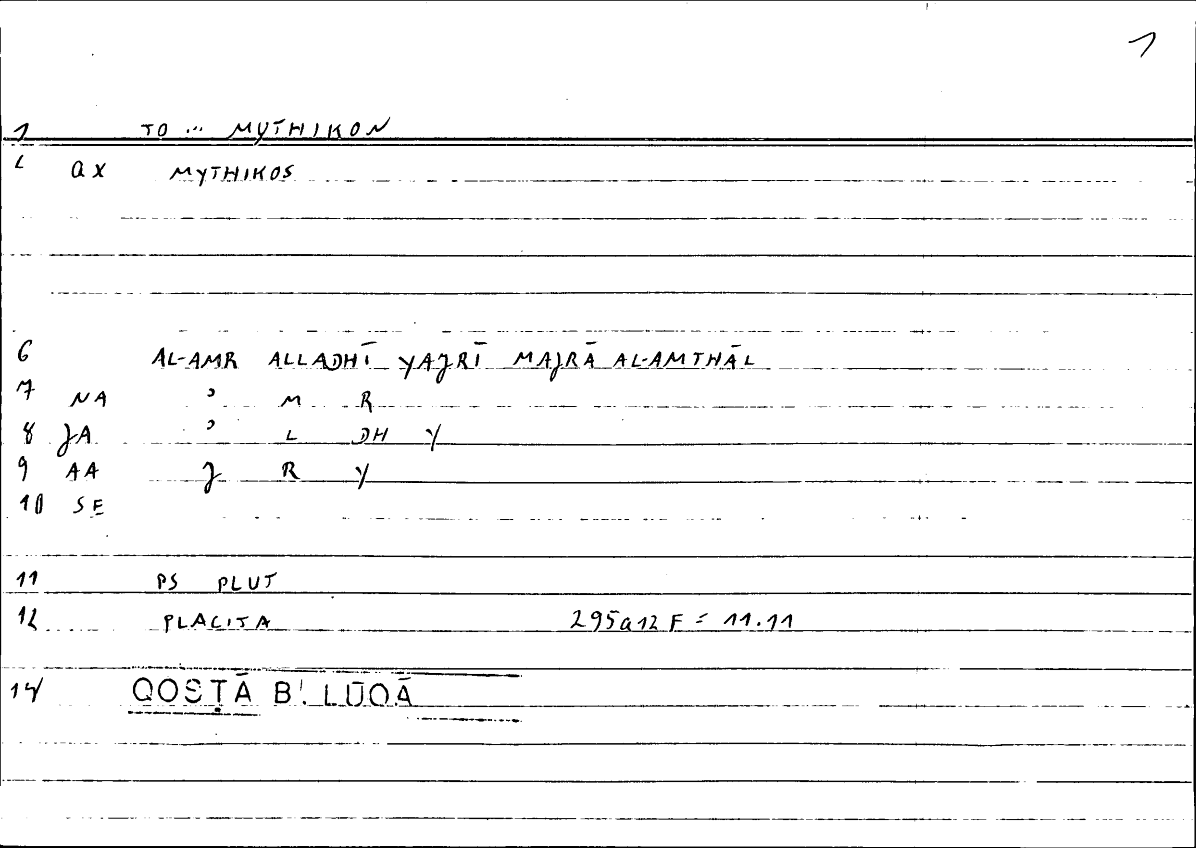 1
1 TO ... MYTHIKON
2 ax MYTHIKOS
6 AL-AMR ALLADHĪ YAJRĪ MAJRĀ AL-AMTHĀL
7 NA ʾ M R
8 JA ʾ L DH Y
9 AA J R Y
10 SE
11 PS PLUT
12 PLACITA 295a12 F = 11.11
14 QOSṬĀ B. LŪQĀ